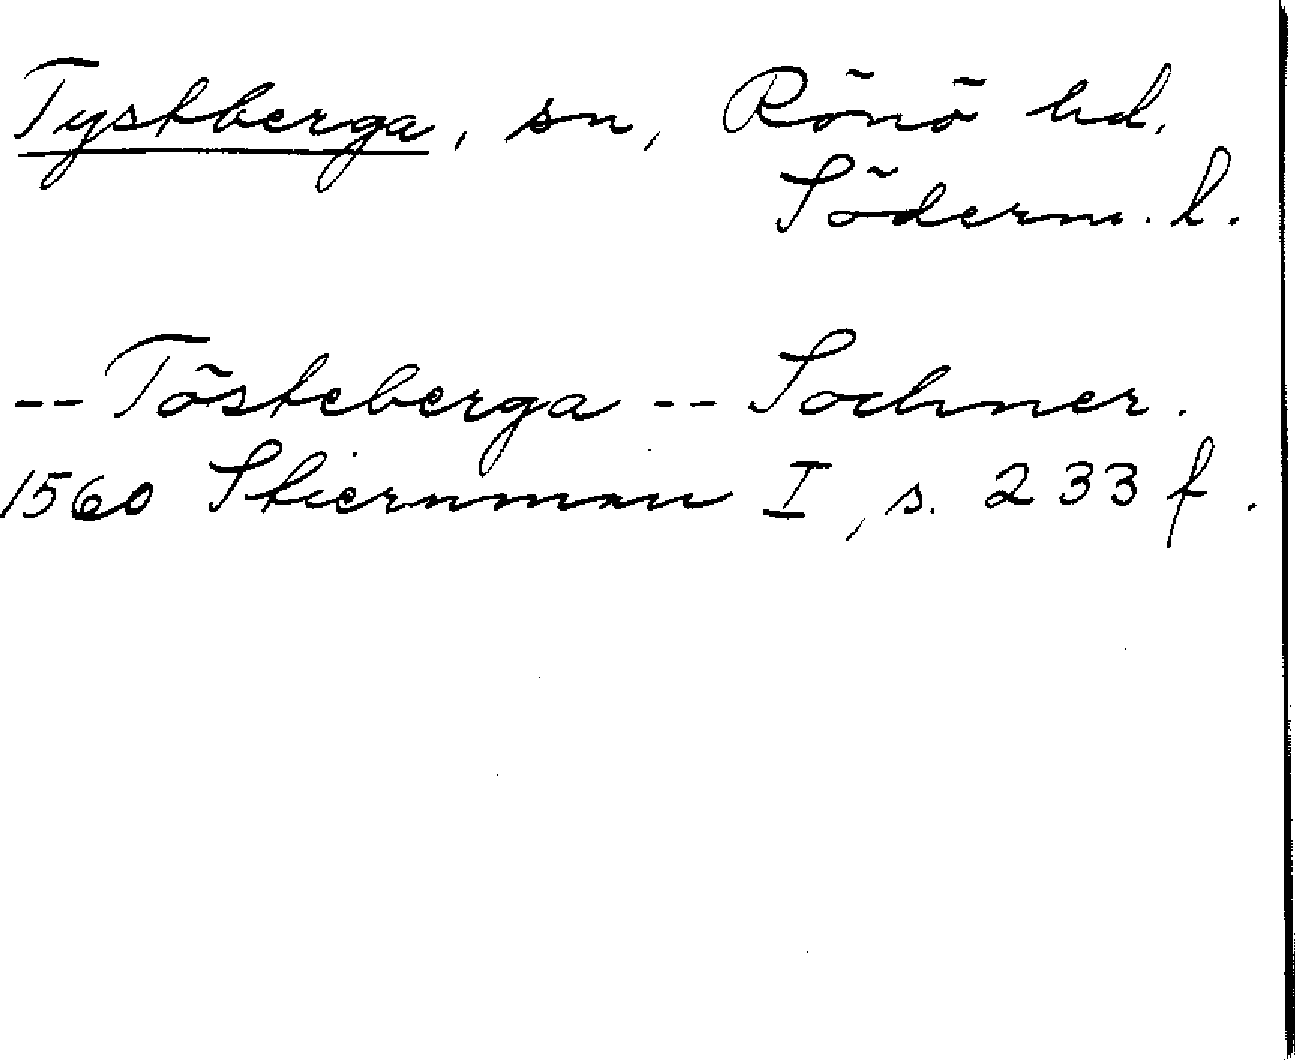 Tystberga, sn, Rönö hd.
Söderm. l.
-- Tösteberga -- Sochner.
1560 Stiernman I, s. 233 f.